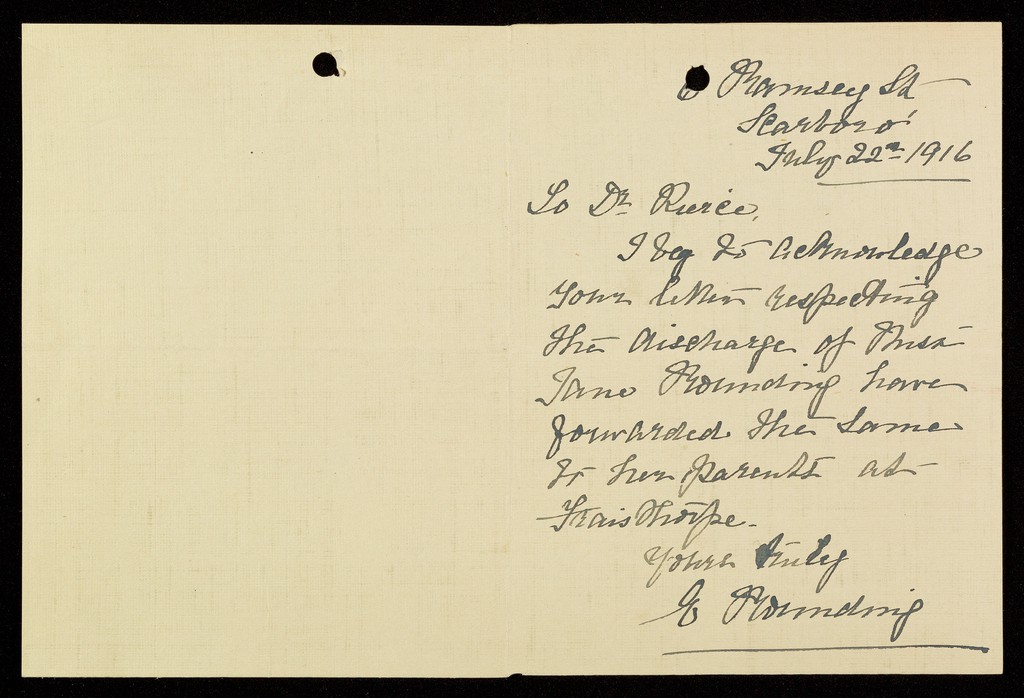 6 Ramsey St
Scarboro'
July 22nd 1916
To Dr Pierce,
I beg to acknowledge
Your letter respecting
the discharge of Miss
Jane Rounding have
forwarded the same
to her parents at
Fraisthorpe.
Yours truly
E Rounding